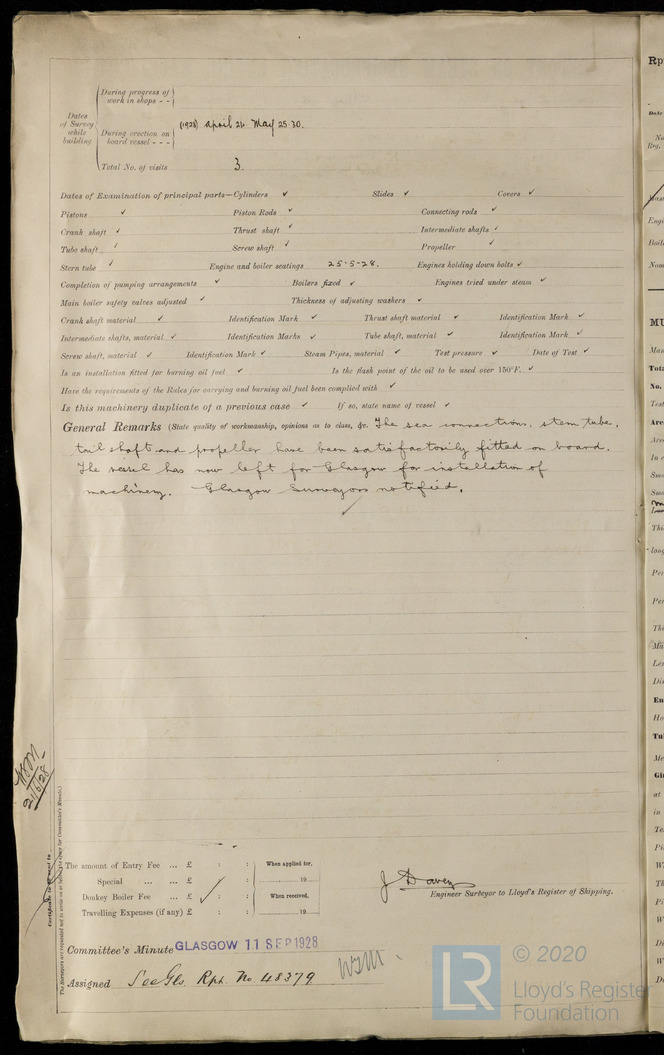 During progress of work in shops - -
Dates of Survey while building
During erection on board vessel - - -
(1928) April 24. May 25. 30.
Total No. of visits 3.
Dates of Examination of principal parts—Cylinders ✓ Slides ✓ Covers ✓
Pistons ✓ Piston Rods ✓ Connecting rods ✓
Crank shaft ✓ Thrust shaft ✓ Intermediate shafts ✓
Tube shaft ✓ Screw shaft ✓ Propeller ✓
Stern tube ✓ Engine and boiler seatings 25·5·28. Engines holding down bolts ✓
Completion of pumping arrangements ✓ Boilers fixed ✓ Engines tried under steam ✓
Main boiler safety valves adjusted ✓ Thickness of adjusting washers ✓
Crank shaft material ✓ Identification Mark ✓ Thrust shaft material ✓ Identification Mark ✓
Intermediate shafts, material ✓ Identification Marks ✓ Tube shaft, material ✓ Identification Mark ✓
Screw shaft, material ✓ Identification Mark ✓ Steam Pipes, material ✓ Test pressure ✓ Date of Test ✓
Is an installation fitted for burning oil fuel ✓ Is the flash point of the oil to be used over 150°F. ✓
Have the requirements of the Rules for carrying and burning oil fuel been complied with ✓
Is this machinery duplicate of a previous case ✓ If so, state name of vessel ✓
General Remarks (State quality of workmanship, opinions as to class, &c. The sea connections, stern tube,
tail shaft and propeller have been satisfactorily fitted on board.
The vessel has now left for Glasgow for installation of
machinery. Glasgow Surveyors notified.
21/6/28
Certificate to be sent to
The Surveyors are requested not to write on or below the space for Committee's Minute.)
The amount of Entry Fee ... £ : : When applied for,
Special ... ... £ : : 19
Donkey Boiler Fee ... £ : : When received,
Travelling Expenses (if any) £ : : 19
J Davey
Engineer Surveyor to Lloyd's Register of Shipping.
Committee's Minute GLASGOW 11 SEP 1928
Assigned See Gls. Rpt. No 48379
LR © 2020
Lloyd's Register
Foundation